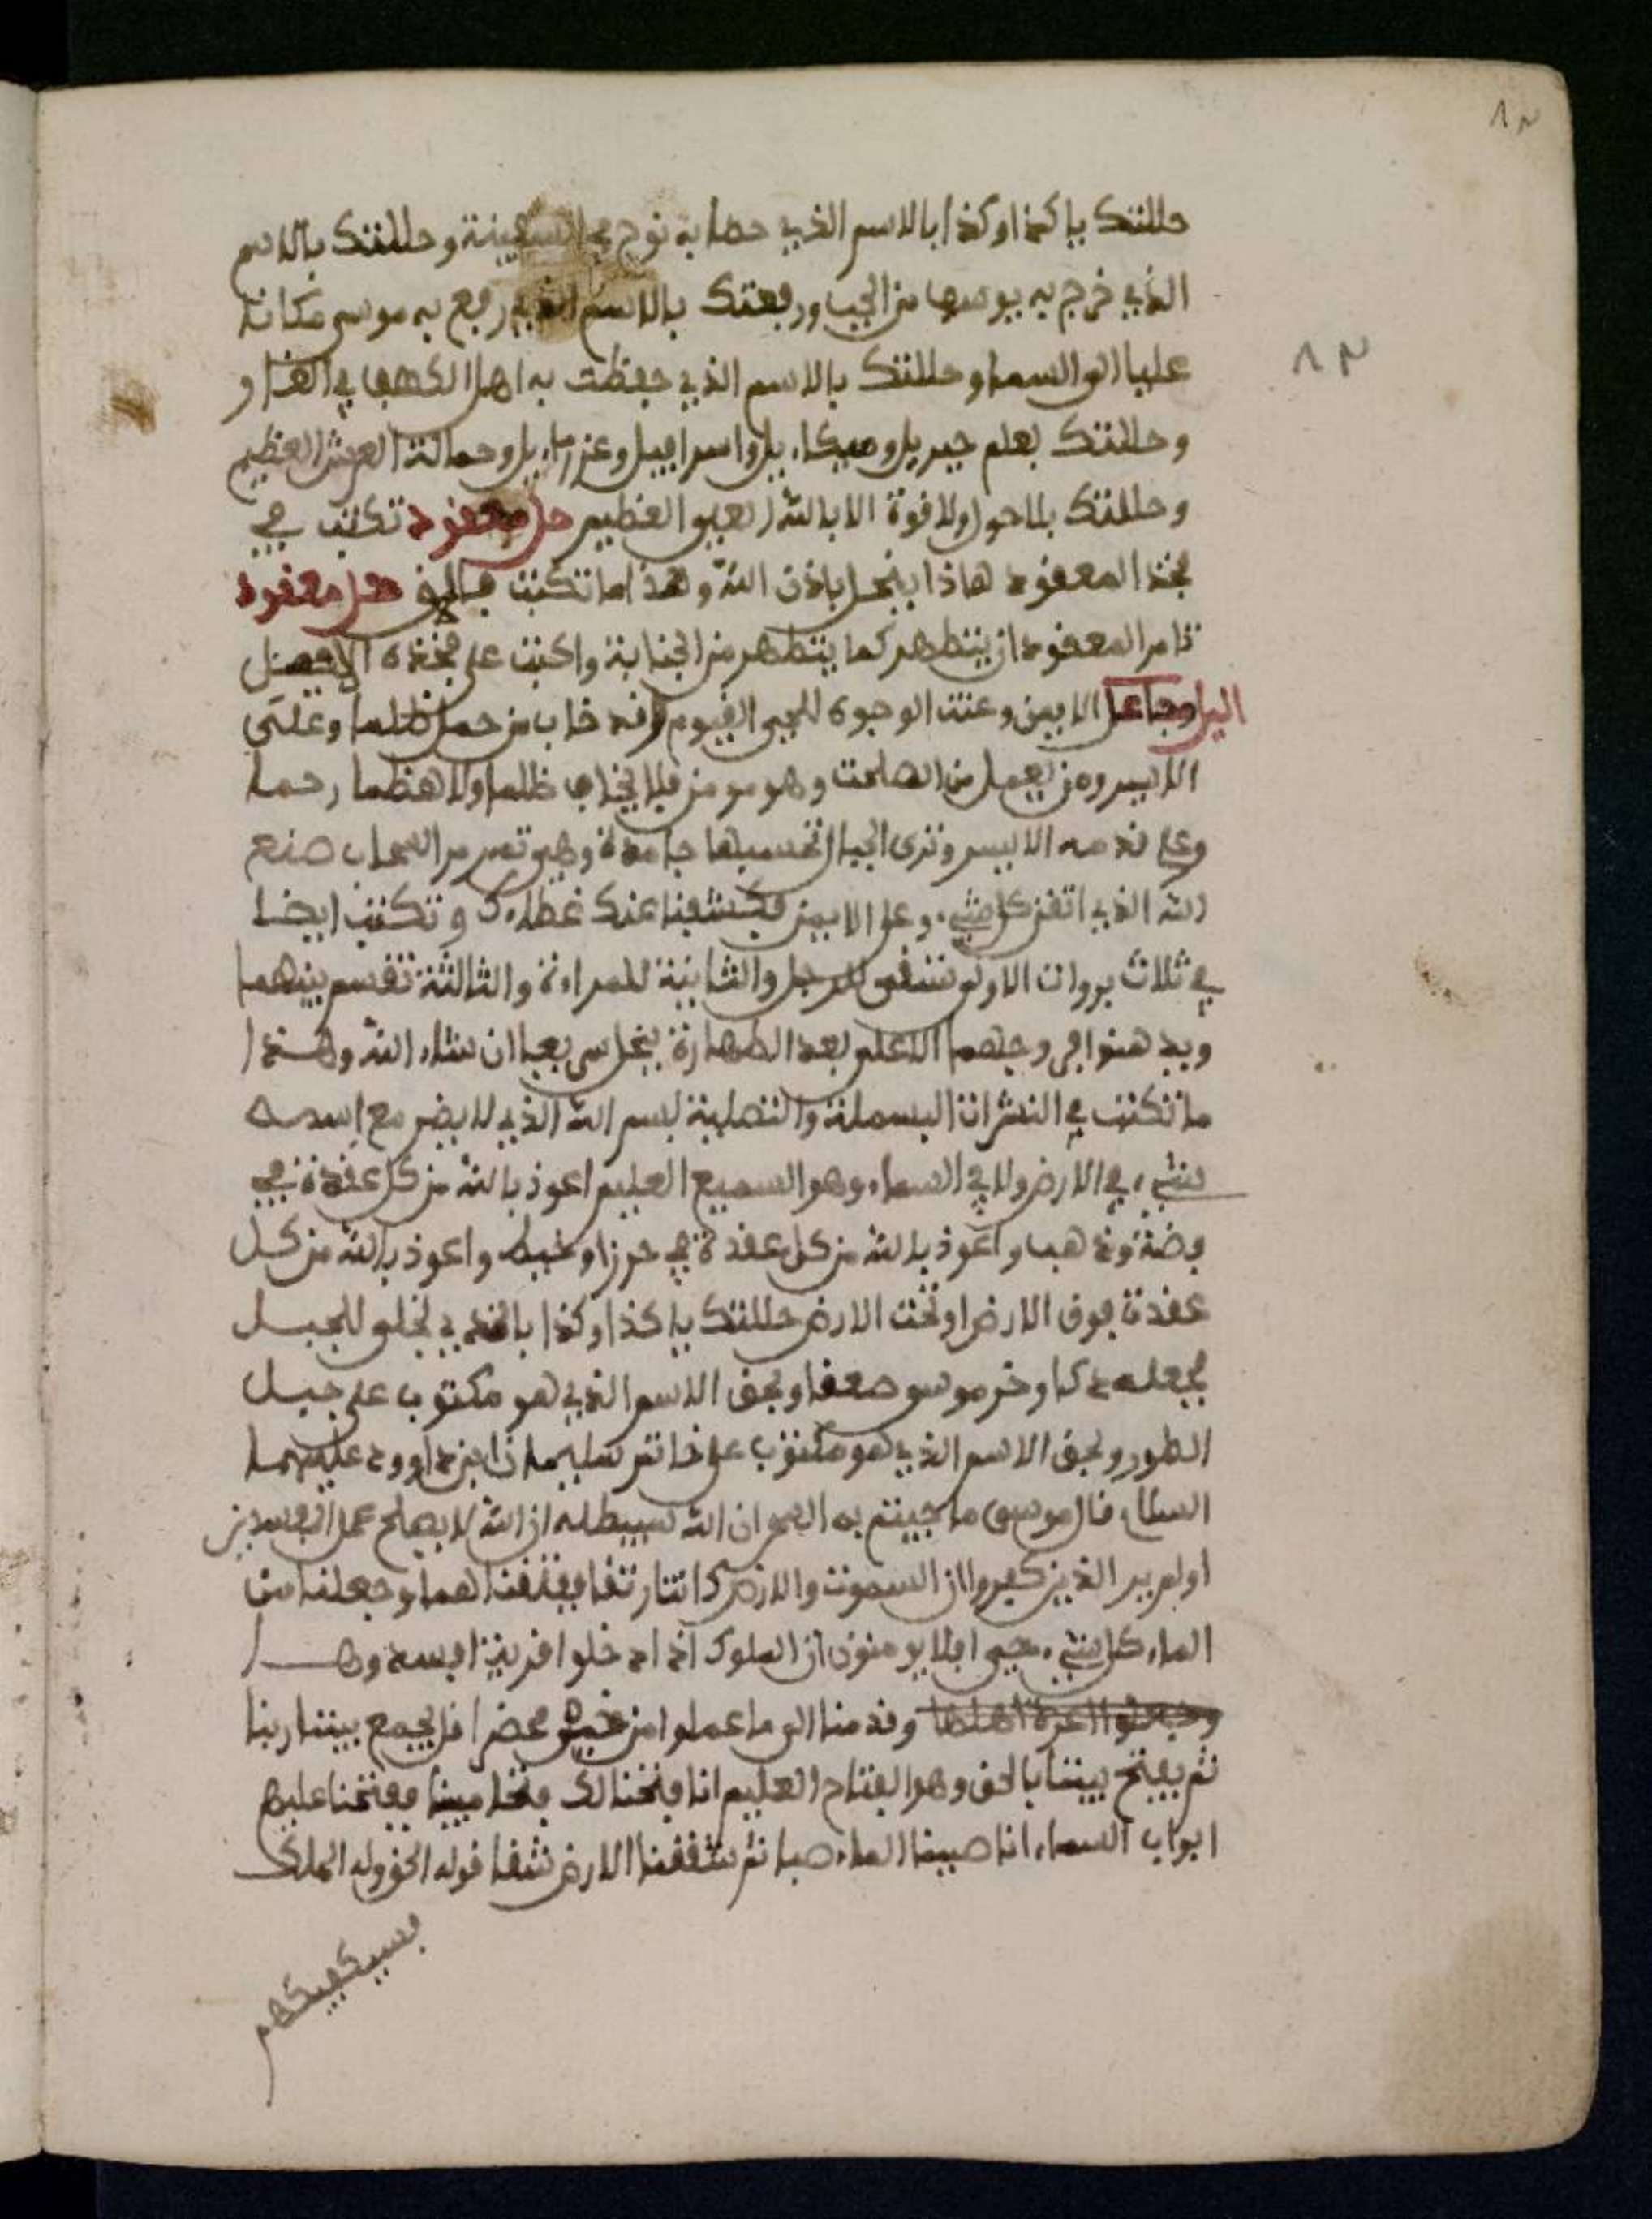 ٨٣
٨٣
حللتك يا كذا وكذا بالاسم الذي حطا به نوح في السفينة وحللتك بالاسم
الذي خرج به يوسف من الجب ورفعتك بالاسم الذي رفع به موسى مكانا
عليا الى السما وحللتك بالاسم الذي حفظت به اهل الكهف في الغار و
وحللتك بعلم جبريل وميكاءيل واسرافيل وعزراءيل وحمالة العرش العظيم
وحللتك بلا حول ولا قوة الا بالله العلي العظيم حل معقود تكتب في
فخذ المعقود هاذا ينحل باذن الله وهذا ما تكتب حل معقود
تامر المعقود ان يتطهر كما يتطهر من الجنابة واكتب على فخذه
الايمن وعنت الوجوه للحي القيوم وقد خاب من حمل ظلما وعلى
الايسر ومن يعمل من الصلحت وهو مومن فلا يخاف ظلما ولا هظما
وعلى قدمه الايسر وترى الجبال تحسبها جامدة وهي تمر مر السحاب صنع
الله الذي اتقن كل شيء وعلى الايمن فكشفنا عنك غطاءك وتكتب ايضا
في ثلاث بروات الاولى تسقى للرجل والثانية للمراءة والثالثة تقسم بينهما
ويدهنوا في وجههما الاعلى بعد الطهارة ينحل سريعا ان شاء الله وهذا
ما تكتب في النشرات البسملة والتصلية بسم الله الذي لا يضر مع اسمه
شيء في الارض ولا في السماء وهو السميع العليم اعوذ بالله من كل عقدة في
فضة وذهب واعوذ بالله من كل عقدة في حرز او خيط واعوذ بالله من كل
عقدة فوق الارض او تحت الارض حللتك يا كذا وكذا بالذي تجلى للجبل
فجعله دكا وخر موسى صعقا وبحق الاسم الذي هو مكتوب على جبل
الطور وبحق الاسم الذي هو مكتوب على خاتم سليمان ابن داوود عليهما
السلام قال موسى ما جيتم به السحر ان الله سيبطله ان الله لا يصلح عمل المفسدين
اولم ير الذين كفروا ان السموت والارض كانتا رتقا ففتقنهما وجعلنا من
الماء كل شيء حي افلا يومنون ان الملوك اذا دخلوا قرية افسدوها
وجعلوا اعزة اهلها وقدمنا الى ما عملوا من قل يجمع بيننا ربنا
ثم يفتح بيننا بالحق وهو الفتاح العليم انا فتحنا لك فتحا مبينا ففتحنا عليهم
ابواب السماء انا صببنا الماء صبا ثم شققنا الارض شقا قوله الحق وله الملك
فسيكفيكهم